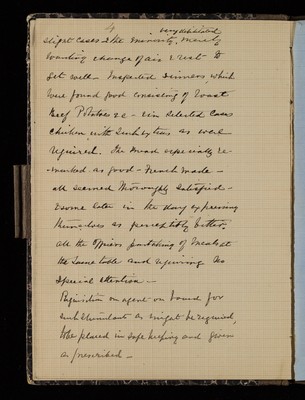 4
very debilitated
slight cases & the minority, merely
wanting change of air & rest to
get well — Inspected dinners, which
were found good consisting of Roast
Beef Potatoes &c — & in selected cases
chicken, with such extras as were
required. The Bread especially re-
-marked as good — French made —
all seemed thoroughly satisfied —
& some later in the day expressing
themselves as perceptibly better,
all the Officers partaking of meals at
the same table and requiring no
special attention —
Requisition on agent on board for
such stimulants as might be required,
to be placed in safe keeping and given
as prescribed —